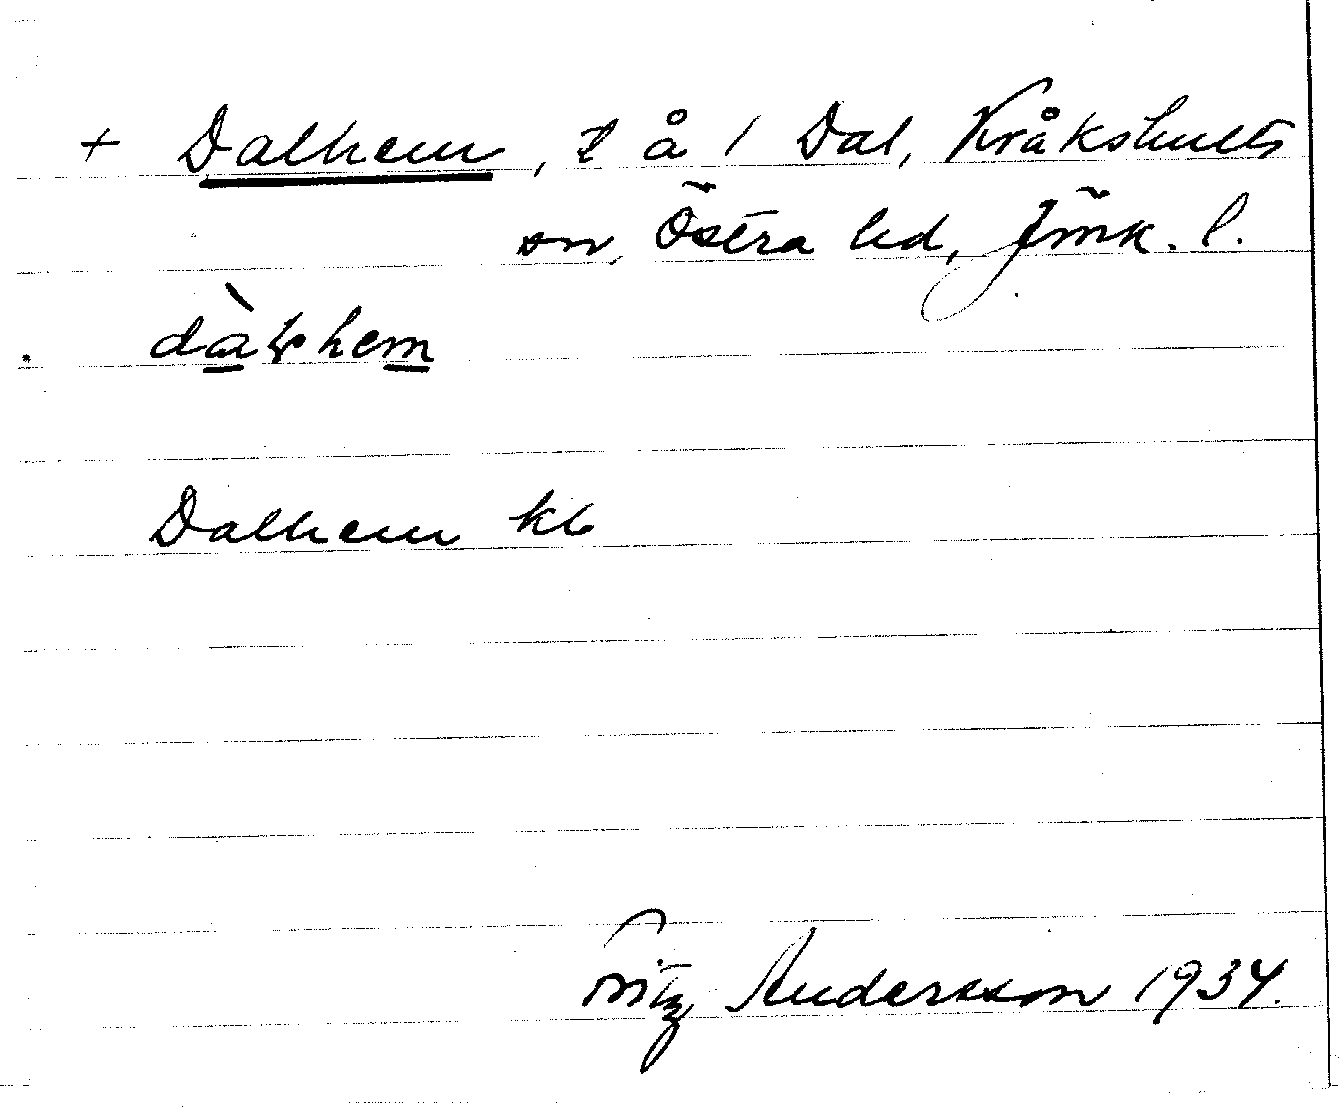 + Dalhem, l å 1 Dal, Kråkshults
sn, Östra hd, Jönk. l.
dàlhem
Dalhem kb
Fritz Andersson 1934.